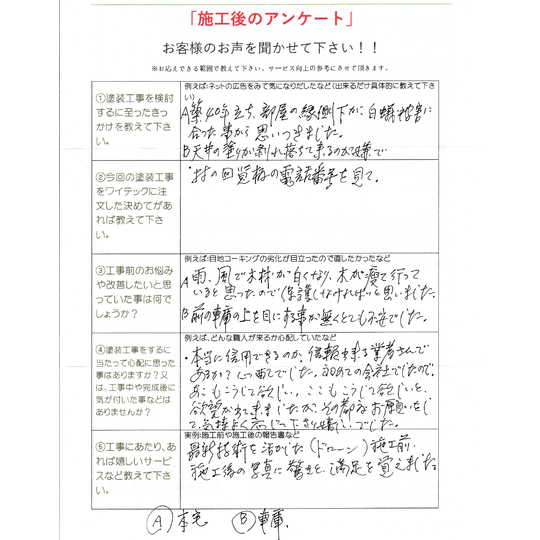 「施工後のアンケート」
お客様のお声を聞かせて下さい！！
※お応えできる範囲で教えて下さい。サービス向上の参考にさせて頂きます。
①塗装工事を検討
するに至ったきっ
かけを教えて下さ
い。
例えば:ネットの広告をみて気になりだしたなど(出来るだけ具体的に教えて下さ
い)
A築40年立ち、部屋の縁側下が、白蟻被害に
合った事から思いつきました。
B天井の塗りが剥れ落ちて来るのが嫌で
②今回の塗装工事
をワイテックに注
文した決めてがあ
れば教えて下さ
い。
・村の回覧板の電話番号を見て。
③工事前のお悩み
や改善したいと思
っていた事は何で
しょうか？
例えば:目地コーキングの劣化が目立ったので直したかったなど
A 雨、風で木材が白くなり、木が痩て行って
いると思ったので保護しなければと思いました。
B 前の車庫の上を目にする事が無くとても不安でした。
④塗装工事をするに
当たって心配に思った
事はありますか？又
は、工事中や完成後に
気が付いた事などは
ありませんか？
例えば、どんな職人が来るか心配していたなど
・本当に信用できるのか、信頼出来る業者さんで
あるか？心配でした。初めての会社でしたので、
あこもこうして欲しい。ここもこうして欲しいと、
欲望が出て来ましたが、その都度お願いをし
て、気持よく応じて下さり嬉しいでした。
⑤工事にあたり、あ
れば嬉しいサービス
など教えて下さい。
実例:施工前や施工後の報告書など
最新技術を活かした（ドローン）施工前、
施工後の写真に驚きと、満足を覚えました
Ⓐ本宅 Ⓑ車庫、